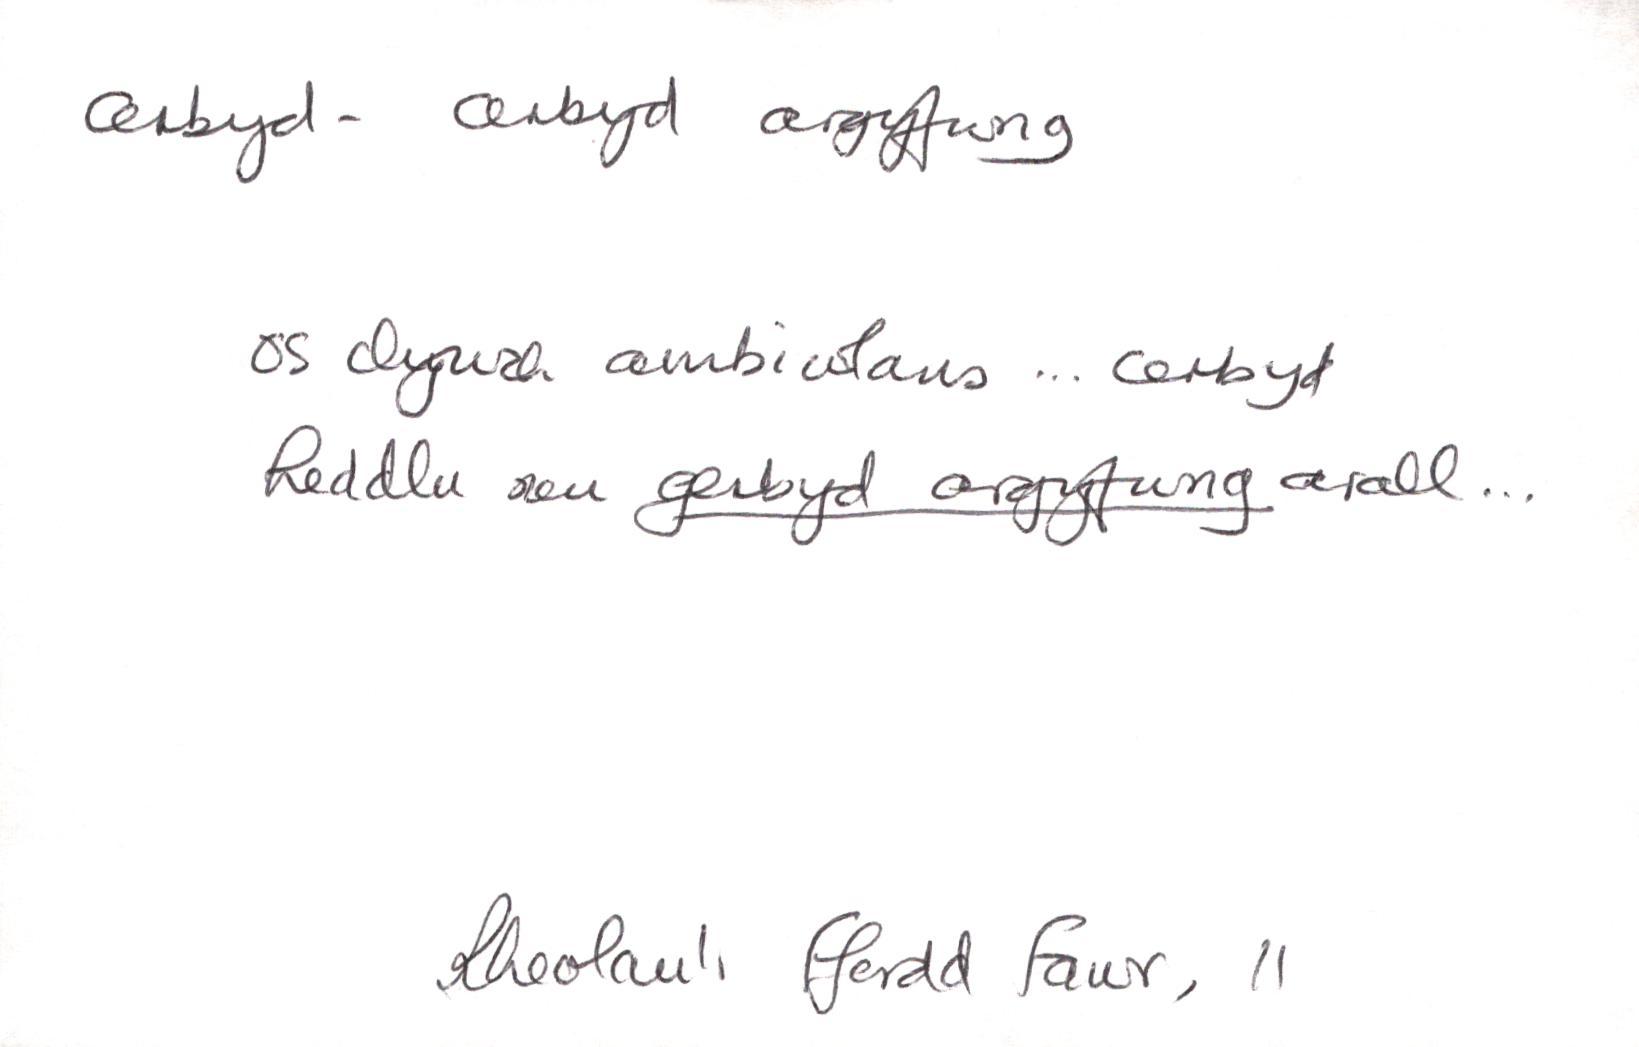 cerbyd - cerbyd argyfwng
os clywch ambiwlans ... cerbyd
heddlu neu gerbyd argyfwng arall ...
Rheolau'r Ffordd Fawr, 11